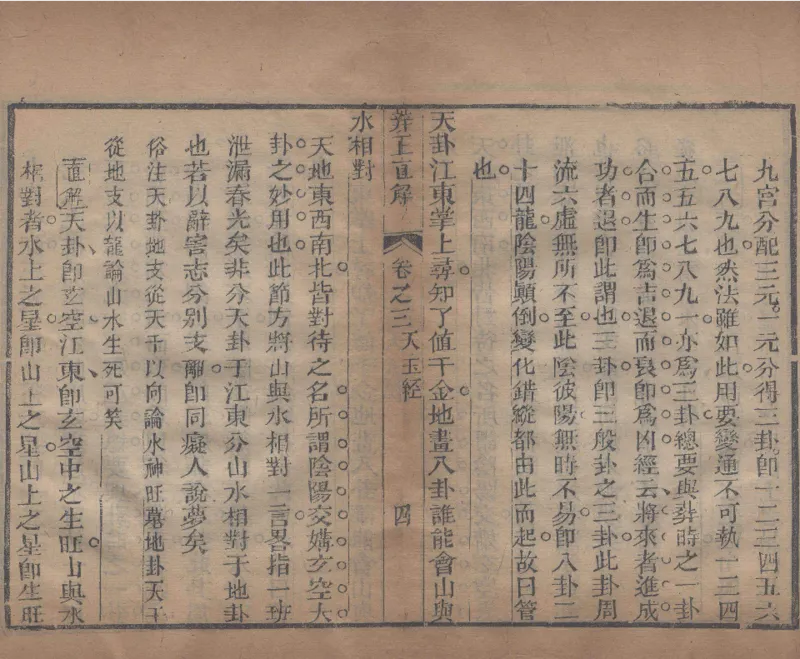 九宮分配三元。一元分得三卦。卽一二三四五六
七八九也。然法雖如此。用要變通。不可執一三四
五五六七八九一。亦爲三卦。總要與葬時之一卦
合而生卽爲吉。退而衰卽爲凶。經云將來者進成
功者退卽此謂也。三卦卽三般卦之三卦。此卦周
流六虛。無所不至。此陰彼陽。無時不易。卽八卦二
十四龍。陰陽顛倒。變化錯綜。都由此而起。故曰管
也。
天卦江東掌上尋。知了値千金。地畫八卦誰能會。山與
葬王直解 卷之三 天玉經 四
水相對
天地東西南北。皆對待之名。所謂陰陽交媾。玄空大
卦之妙用也。此節方將山與水相對一言畧指一班
泄漏春光矣。非分天卦于江東。分山水相對于地卦
也。若以辭害志。分別支離。卽同癡人說夢矣。
俗注天卦地支從天干以向論水神旺墓地卦天干
從地支以龍論山水生死可笑
直解天卦卽玄空。江東卽玄空中之生旺。山與水
相對者。水上之星。卽山上之星。山上之星。卽生旺